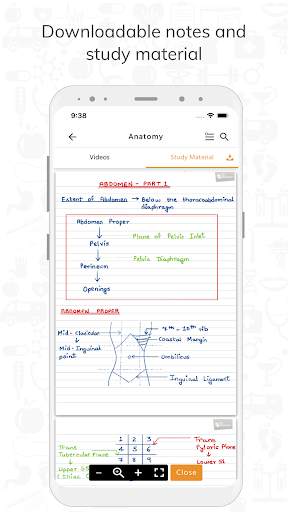 Downloadable notes and
study material
9:38
Anatomy
Videos
Study Material
ABDOMEN - PART 1
Extent of Abdomen → Below the thoracoabdominal
diaphragm
Abdomen Proper
Plane of Pelvic Inlet
Pelvis
Pelvic Diaphragm
Perineum
Openings
ABDOMEN PROPER
7th - 10th rib
Mid-Clavicular
Coastal Margin
Mid-Inguinal
point
Umbilicus
Inguinal Ligament
1 2 3
Trans
Tubercular Plane
4 5 6
Trans
Pyloric Plane
Upper
7 8 9
Lower
- + Close